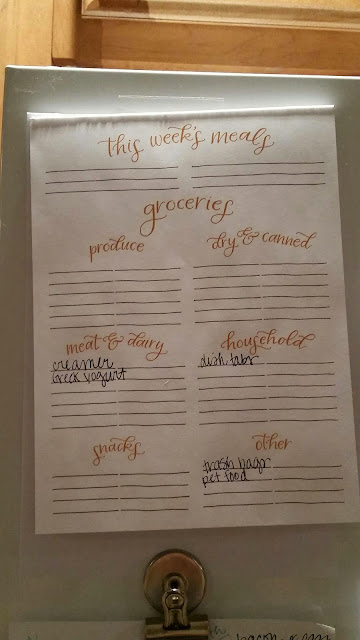 this week's meals
groceries
produce
dry & canned
meat & dairy
household
creamer
dish tabs
Greek yogurt
snacks
other
trash bags
pet food
bacon